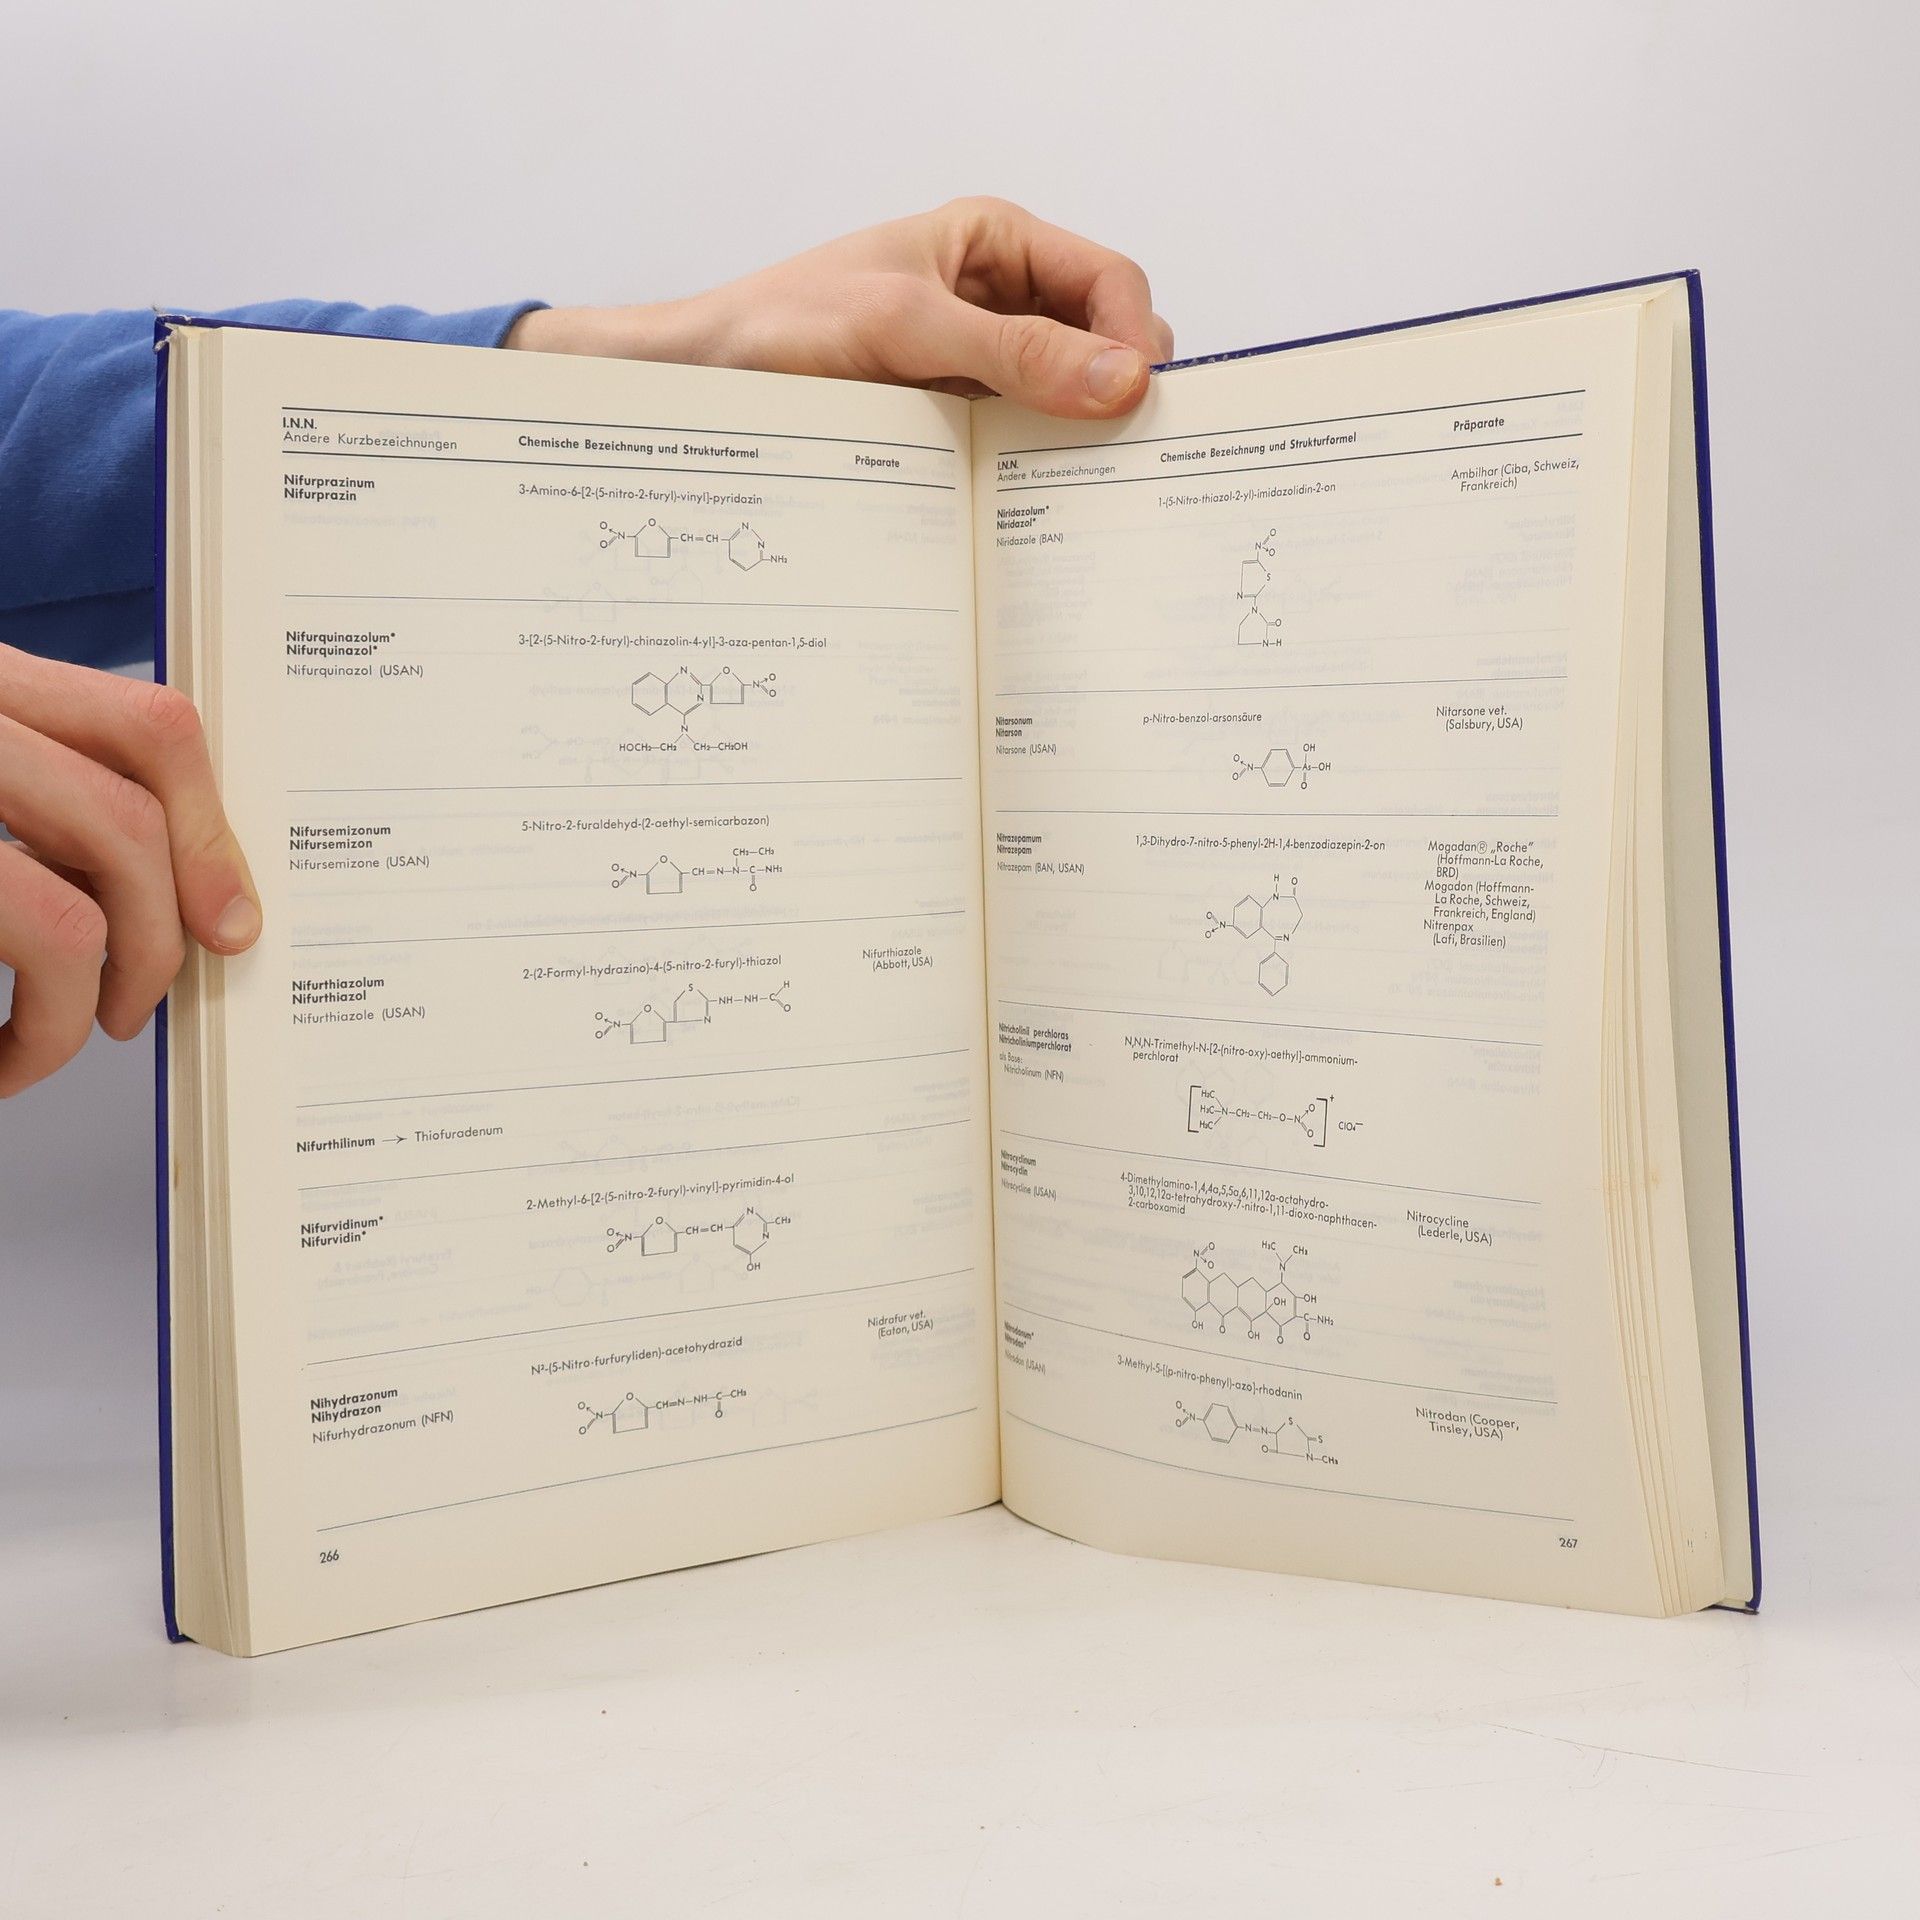 I.N.N.
Andere Kurzbezeichnungen
Chemische Bezeichnung und Strukturformel
Präparate
Nifurprazinum
Nifurprazin
3-Amino-6-[2-(5-nitro-2-furyl)-vinyl]-pyridazin
Nifurquinazolum*
Nifurquinazol*
Nifurquinazol (USAN)
3-[2-(5-Nitro-2-furyl)-chinazolin-4-yl]-3-aza-pentan-1,5-diol
HOCH₂—CH₂ CH₂—CH₂OH
Nifursemizonum
Nifursemizon
Nifursemizone (USAN)
5-Nitro-2-furaldehyd-(2-aethyl-semicarbazon)
Nifurthiazolum
Nifurthiazol
Nifurthiazole (USAN)
2-(2-Formyl-hydrazino)-4-(5-nitro-2-furyl)-thiazol
Nifurthiazole
(Abbott, USA)
Nifurthilinum → Thiofuradenum
Nifurvidinum*
Nifurvidin*
2-Methyl-6-[2-(5-nitro-2-furyl)-vinyl]-pyrimidin-4-ol
Nihydrazonum
Nihydrazon
Nifurhydrazonum (NFN)
N²-(5-Nitro-furfuryliden)-acetohydrazid
Nidrafur vet.
(Eaton, USA)
266
I.N.N.
Andere Kurzbezeichnungen
Chemische Bezeichnung und Strukturformel
Präparate
Niridazolum*
Niridazol*
Niridazole (BAN)
1-(5-Nitro-thiazol-2-yl)-imidazolidin-2-on
Ambilhar (Ciba, Schweiz,
Frankreich)
Nitarsonum
Nitarson
Nitarsone (USAN)
p-Nitro-benzol-arsonsäure
Nitarsone vet.
(Salsbury, USA)
Nitrazepamum
Nitrazepam
Nitrazepam (BAN, USAN)
1,3-Dihydro-7-nitro-5-phenyl-2H-1,4-benzodiazepin-2-on
Mogadan® „Roche”
(Hoffmann-La Roche,
BRD)
Mogadon (Hoffmann-
La Roche, Schweiz,
Frankreich, England)
Nitrenpax
(Lafi, Brasilien)
Nitricholinii perchloras
Nitricholiniumperchlorat
als Base:
Nitricholinum (NFN)
N,N,N-Trimethyl-N-[2-(nitro-oxy)-aethyl]-ammonium-
perchlorat
Nitrocyclinum
Nitrocyclin
Nitrocycline (USAN)
4-Dimethylamino-1,4,4a,5,5a,6,11,12a-octahydro-
3,10,12,12a-tetrahydroxy-7-nitro-1,11-dioxo-naphthacen-
2-carboxamid
Nitrocycline
(Lederle, USA)
Nitrodanum*
Nitrodan*
Nitrodan (USAN)
3-Methyl-5-[(p-nitro-phenyl)-azo]-rhodanin
Nitrodan (Cooper,
Tinsley, USA)
267